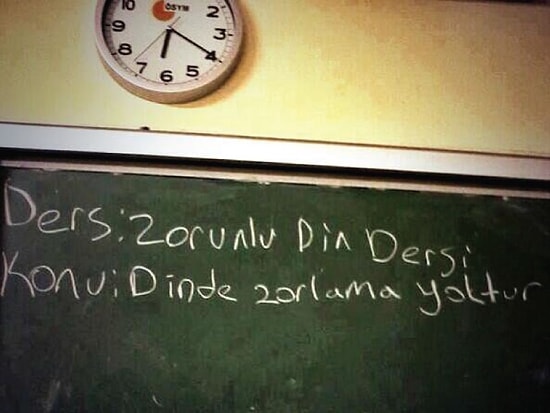 10 ÖSYM 2
9 3
8 4
7 6 5
Ders: Zorunlu Din Dersi
Konu: Dinde zorlama yoktur